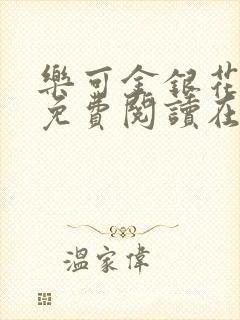 樂可金銀花
免費閱讀在
溫家偉